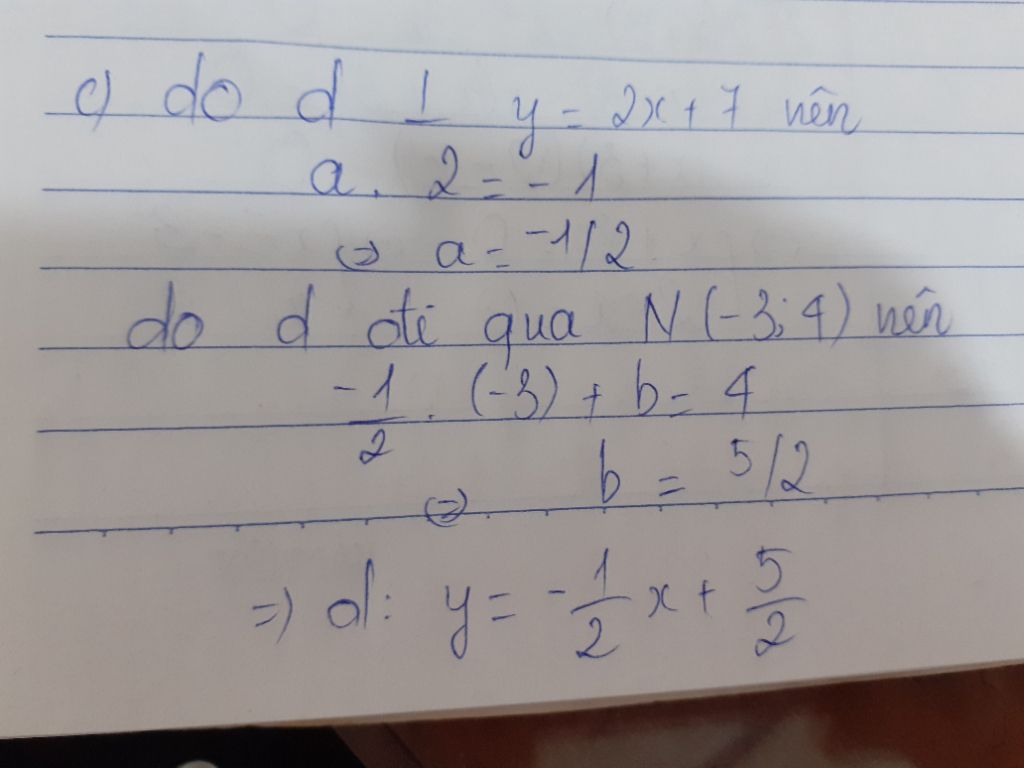 c) do d ⊥ y = 2x + 7 nên
a. 2 = - 1
⇔ a = -1/2
do d đi qua N (-3; 4) nên
-1/2 . (-3) + b = 4
⇔ b = 5/2
=> d: y = -1/2 x + 5/2